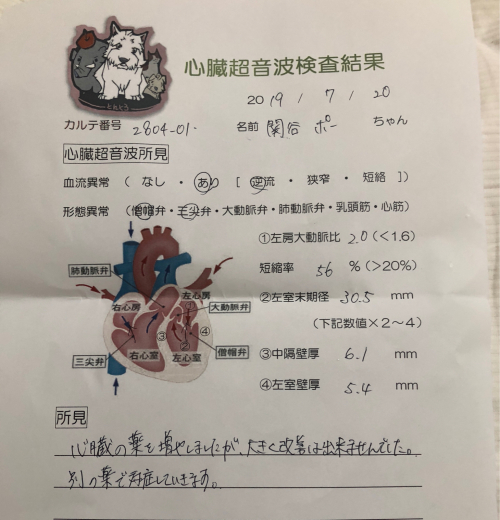 心臓超音波検査結果
2019 / 7 / 20
カルテ番号 2804-01. 名前 関谷 ポー ちゃん
心臓超音波所見
血流異常 ( なし ・ あり [ 逆流 ・ 狭窄 ・ 短絡 ])
形態異常 (僧帽弁・三尖弁・大動脈弁・肺動脈弁・乳頭筋・心筋)
①左房大動脈比 2.0 (<1.6)
短縮率 56 % (>20%)
②左室末期径 30.5 mm
(下記数値×2~4)
③中隔壁厚 6.1 mm
④左室壁厚 5.4 mm
肺動脈弁
左心房
大動脈弁
右心房
①
③
②
④
右心室
左心室
僧帽弁
三尖弁
所見
心臓の薬を増やしましたが、大きく改善は出来ませんでした。
別の薬で対症していきます。